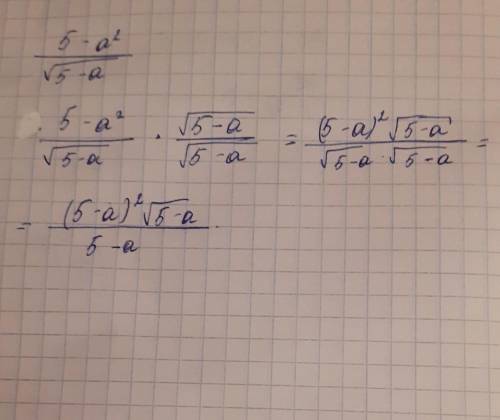 5-a²/√(5-a)
5-a²/√(5-a) · √(5-a)/√(5-a) = (5-a)²√(5-a)/√5-a · √(5-a) =
= (5-a)²√5-a/5-a